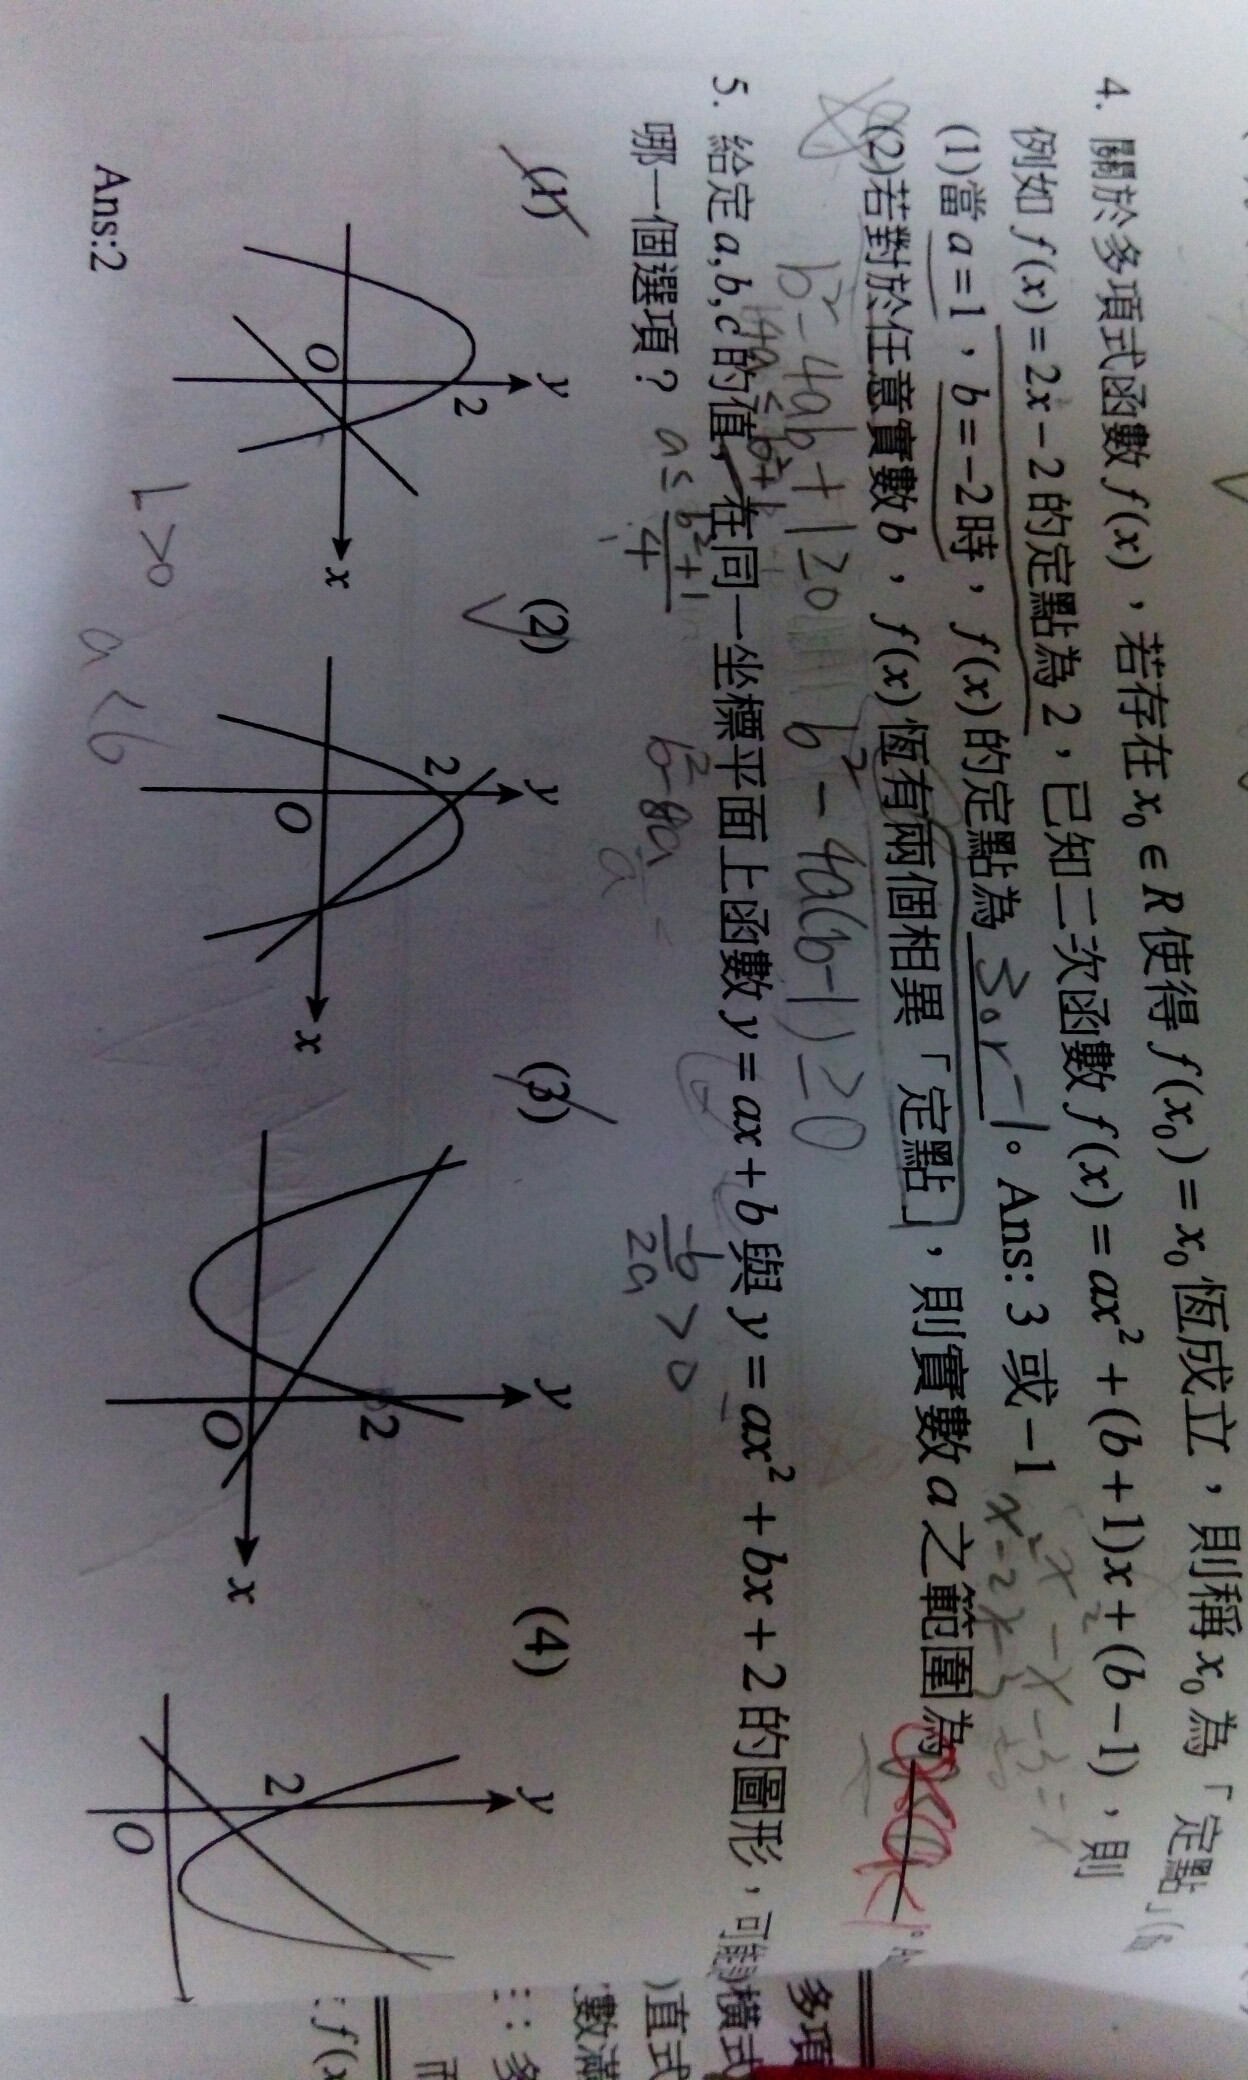 4. 關於多項式函數 f(x)，若存在 x₀ ∈ R 使得 f(x₀) = x₀ 恆成立，則稱 x₀ 為「定點」
例如 f(x) = 2x − 2 的定點為 2，已知二次函數 f(x) = ax² + (b+1)x + (b−1)，則
(1)當 a = 1，b = −2 時，f(x) 的定點為 3 or −1。Ans: 3 或 −1
x² − x − 3 = x
x² − 2x − 3
(2)若對於任意實數 b，f(x) 恆有兩個相異「定點」，則實數 a 之範圍為
b² − 4ab + 1 ≥ 0
b² − 4a(b−1) ≥ 0
5. 給定 a,b,c 的值，在同一坐標平面上函數 y = ax + b 與 y = ax² + bx + 2 的圖形，可能
哪一個選項？
a ≤ b²+1/4
b² − 8a
a
−b/2a > 0
(1)
(2)
(3)
(4)
y
2
O
x
y
2
O
x
y
2
O
x
y
2
O
Ans:2
a < b
多項
橫式
)直式
數滿
: : 多
而
: f(x